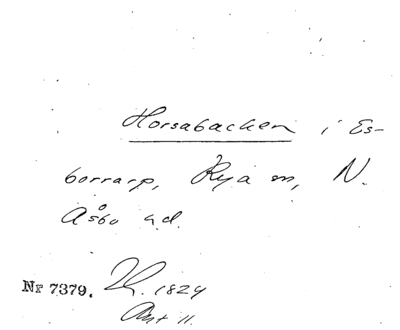 Horsabacken i Es-
borrarp, Rya sn, N.
Åsbo hd.
Nr 7379. 1824
Akt 11.